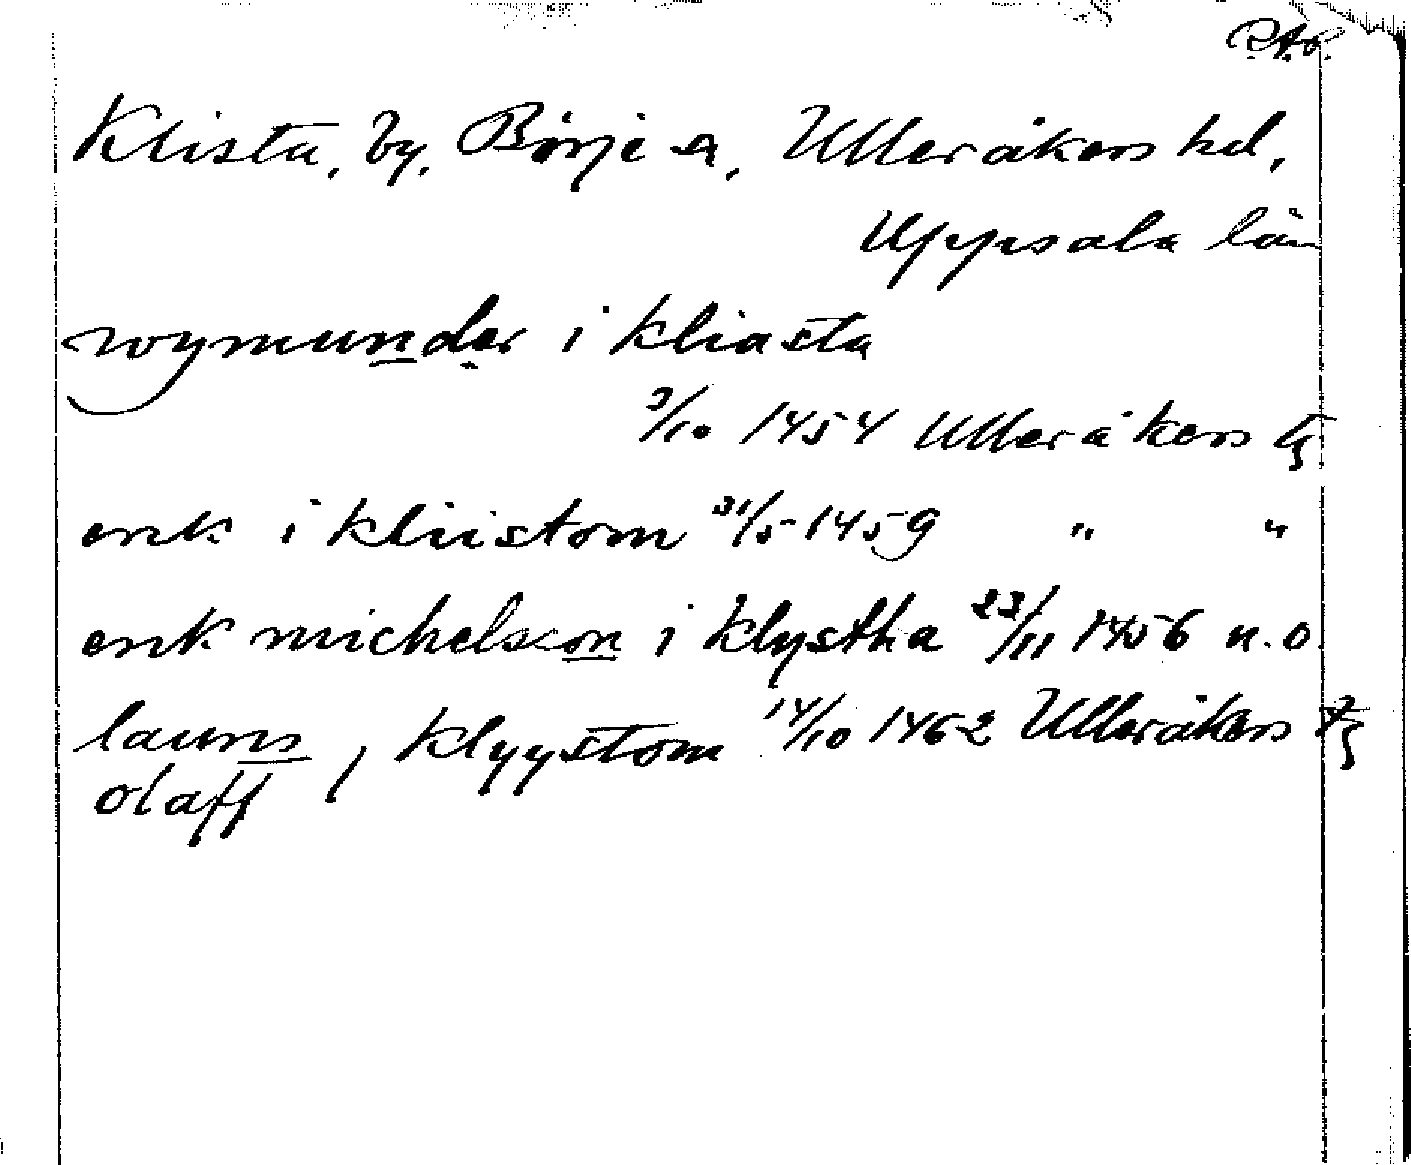 R.A.P.
Klista, by, Börje sn, Ulleråkers hd,
Uppsala län
wymunder i kliasta
3/10 1454 Ulleråkers tg
erik i kliistom 31/5 1459 " "
erik michelsson i klystha 23/11 1456 u.o.
laurns i klyystom 14/10 1462 Ulleråkers tg
olaff